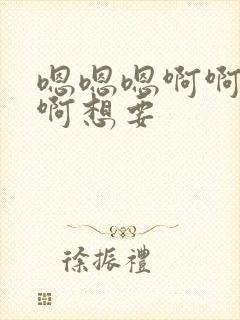 嗯嗯嗯啊啊
啊想要
徐振禮